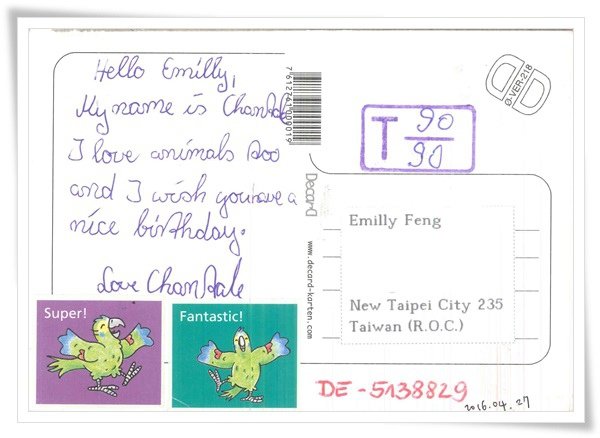 Hello Emilly,
My name is Chantale
I love animals too
and I wish you have a
nice birthday.
Love Chantale
Super!
Fantastic!
7612761000019
Decard
www.decard-karten.com
Ø-VER-218
T 90
90
Emilly Feng
New Taipei City 235
Taiwan (R.O.C.)
DE-5138829
2016.04.27